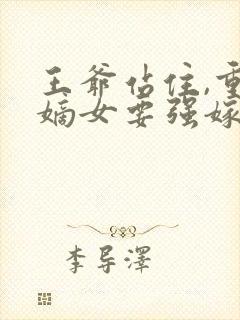 王爷站住,重
嫡女要强嫁
李导泽